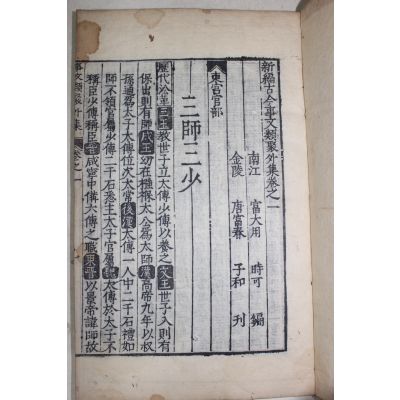 新編古今事文類聚外集卷之一
南江 富大用 時可 編
金陵 唐富春 子和 刋
東宮官部
三師三少
歷代沿革三王教世子立太傅少傅以養之文王世子入則有
保出則有師成王幼在襁褓太公爲太師漢高帝九年以叔
孫通爲太子太傅位次太常後漢太傅一人中二千石禮如
師不領官屬少傅二千石悉主太子官屬魏太傅於太子不
稱臣少傅稱臣晉咸寧中傅太傅之職東晉以景帝諱師故
事文類聚外集 卷之一